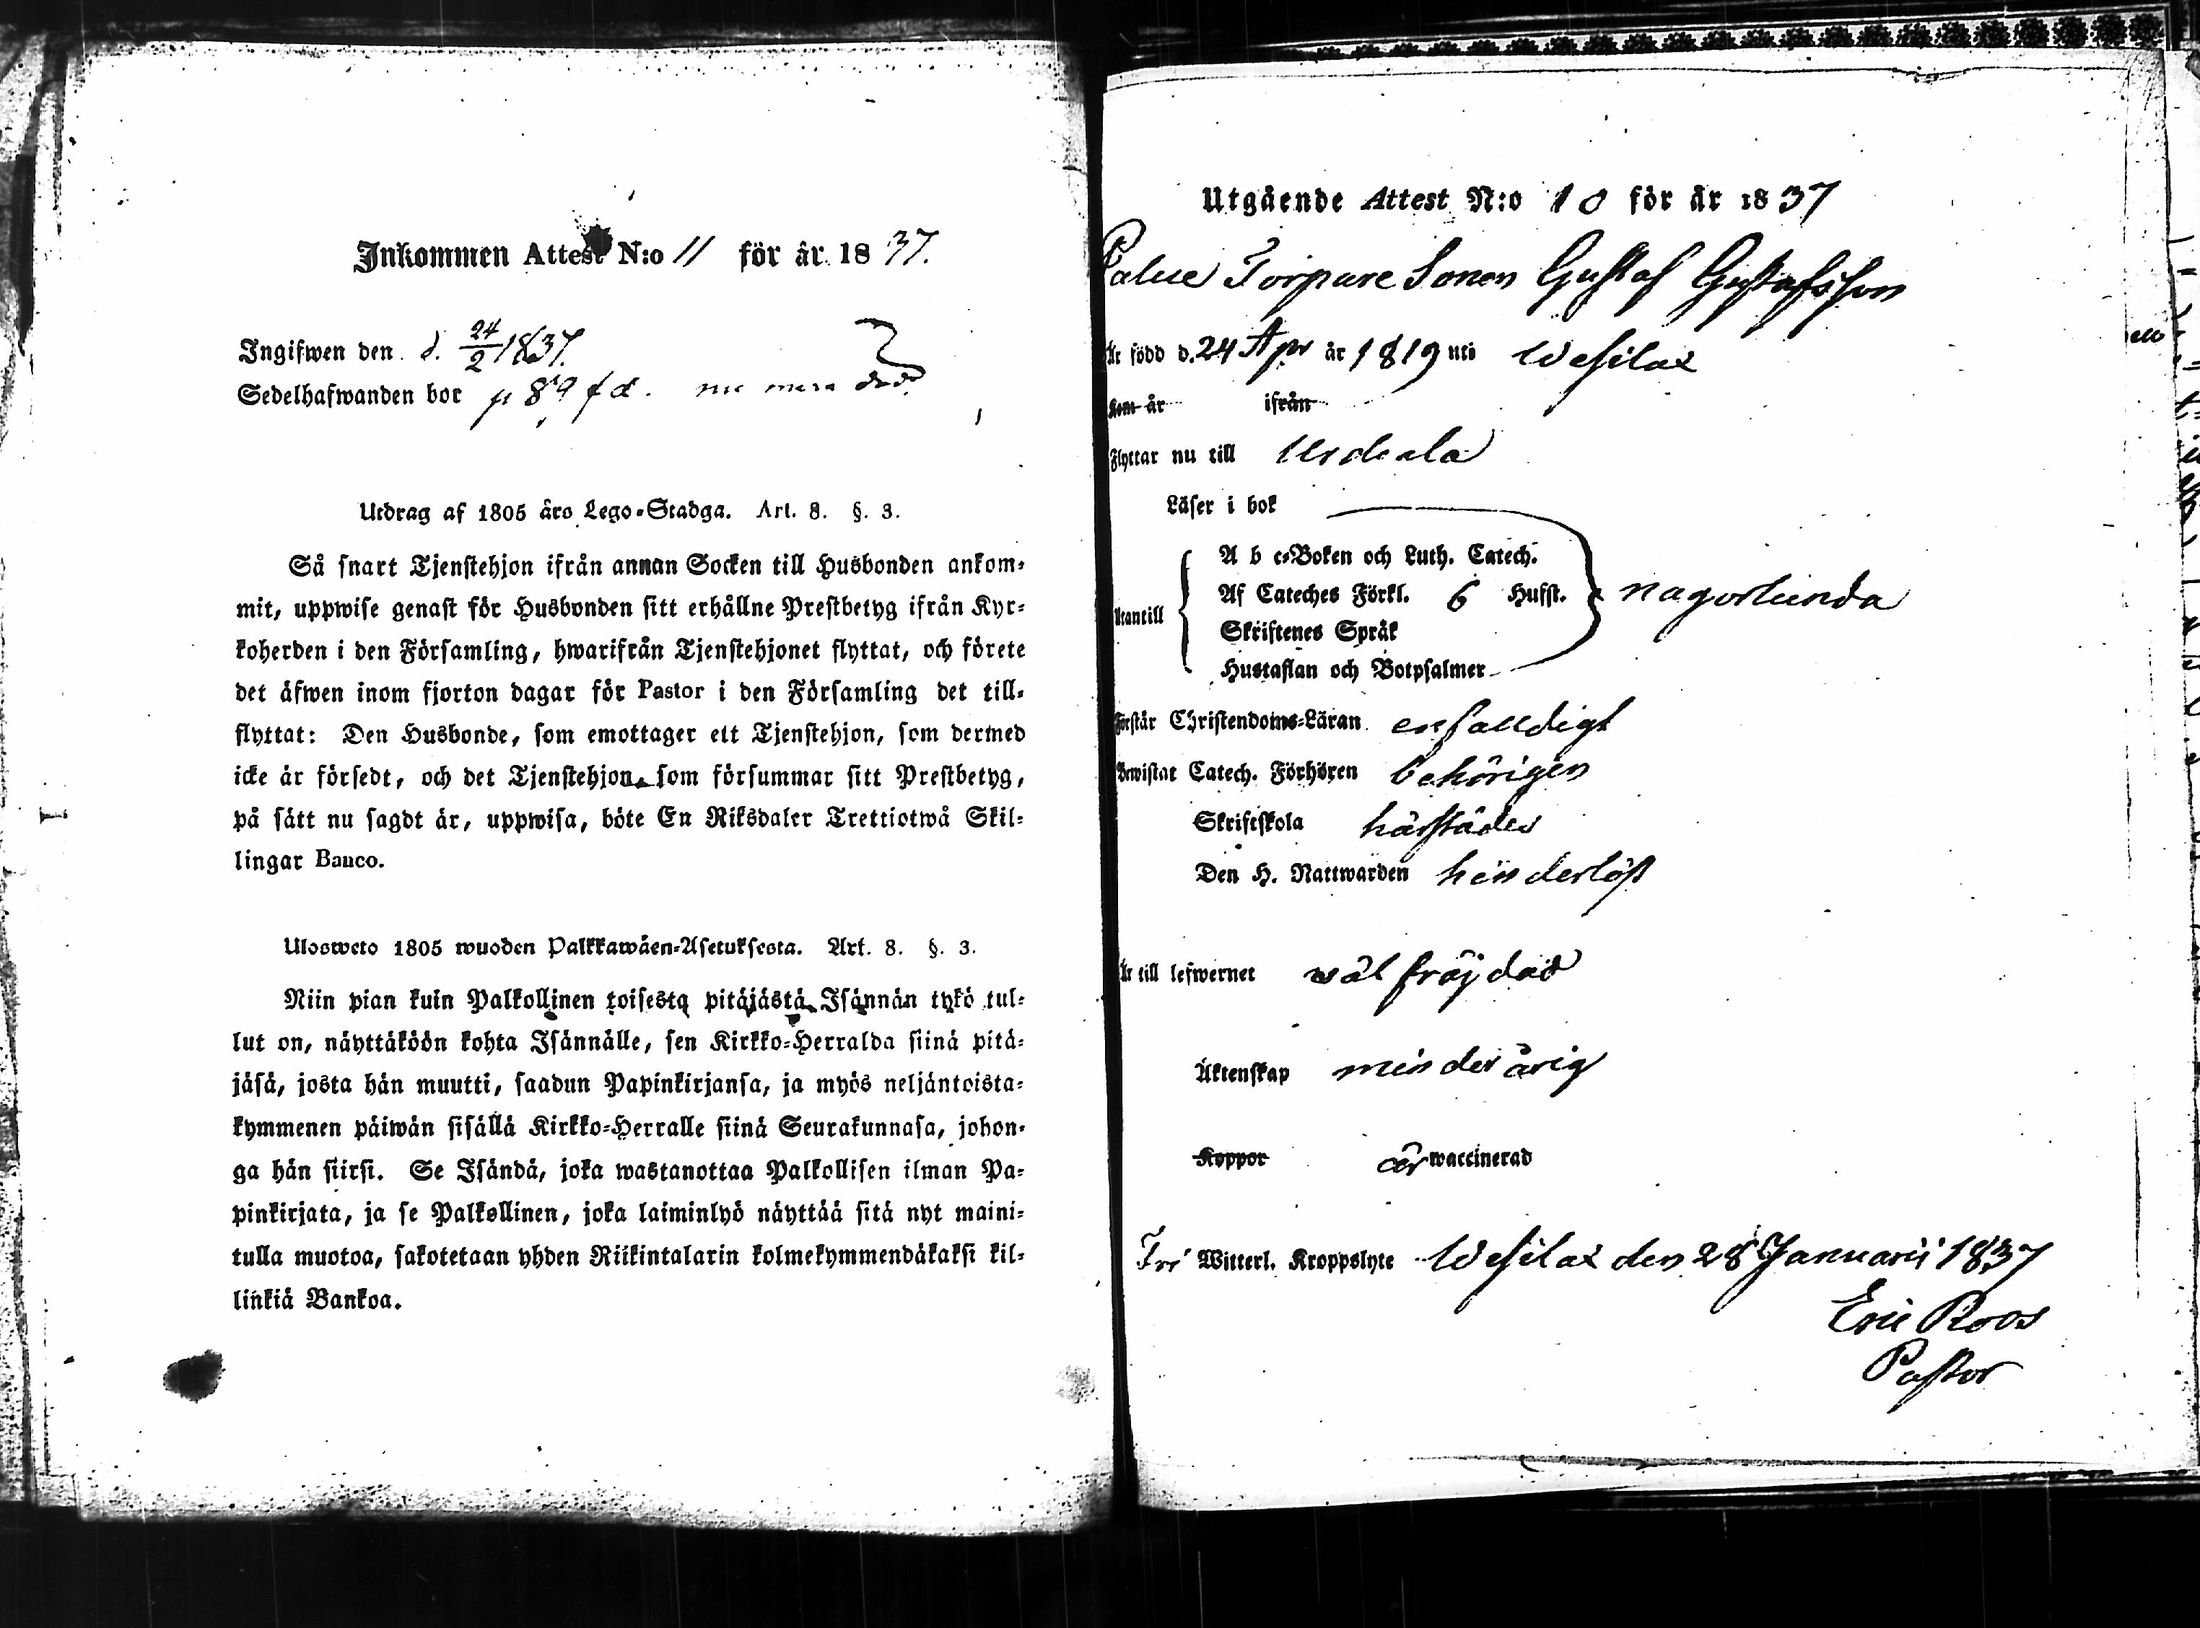 Inkommen Attest N:o 11 för år 1837.
Ingifwen den d. 24/2 1837.
Sedelhafwanden bor p 89 fd. nu mera död.
Utdrag af 1805 års Lego-Stadga. Art. 8. §. 3.
Så snart Tjenstehjon ifrån annan Socken till Husbonden ankom-
mit, uppwise genast för Husbonden sitt erhållne Prestbetyg ifrån Kyr-
koherden i den Församling, hwarifrån Tjenstehjonet flyttat, och förete
det äfwen inom fjorton dagar för Pastor i den Församling det till-
flyttat: Den Husbonde, som emottager ett Tjenstehjon, som dermed
icke är försedt, och det Tjenstehjon, som försummar sitt Prestbetyg,
på sätt nu sagdt är, uppwisa, böte En Riksdaler Trettiotwå Skil-
lingar Banco.
Ulosweto 1805 wuoden Palkkawäen-Asetuksesta. Art. 8. §. 3.
Niin pian kuin Palkollinen toisesta pitäjästä Isännän tykö tul-
lut on, näyttäköön kohta Isännälle, sen Kirkko-Herralda siinä pitä-
jäsä, josta hän muutti, saadun Papinkirjansa, ja myös neljäntoista-
kymmenen päiwän sisällä Kirkko-Herralle siinä Seurakunnasa, johon-
ga hän siirsi. Se Isändä, joka wastanottaa Palkollisen ilman Pa-
pinkirjata, ja se Palkollinen, joka laiminlyö näyttää sitä nyt maini-
tulla muotoa, sakotetaan yhden Riikintalarin kolmekymmendäkaksi kil-
linkiä Bankoa.
Utgående Attest N:o 10 för år 1837
Torpare Sonen Gustaf Gustafsson
Är född d. 24 Apr år 1819 uti Wesilax
Kom år ifrån
Flyttar nu till Urdiala
Läser i bok
A b c-Boken och Luth. Catech.
Af Cateches Förkl. 6 Hufst. någorlunda
Utantill
Skriftenes Språk
Hustaflan och Botpsalmer
Förstår Christendoms-Läran enfalldigt
Bewistat Catech. Förhören behörigen
Skriftskola härstädes
Den H. Nattwarden hinderlöst
Är till lefwernet wälfräjdad
Äktenskap minderårig
Koppor är waccinerad
Fri Witterl. Kroppslyte Wesilax den 28 Januarii 1837
Eric Roos
Pastor